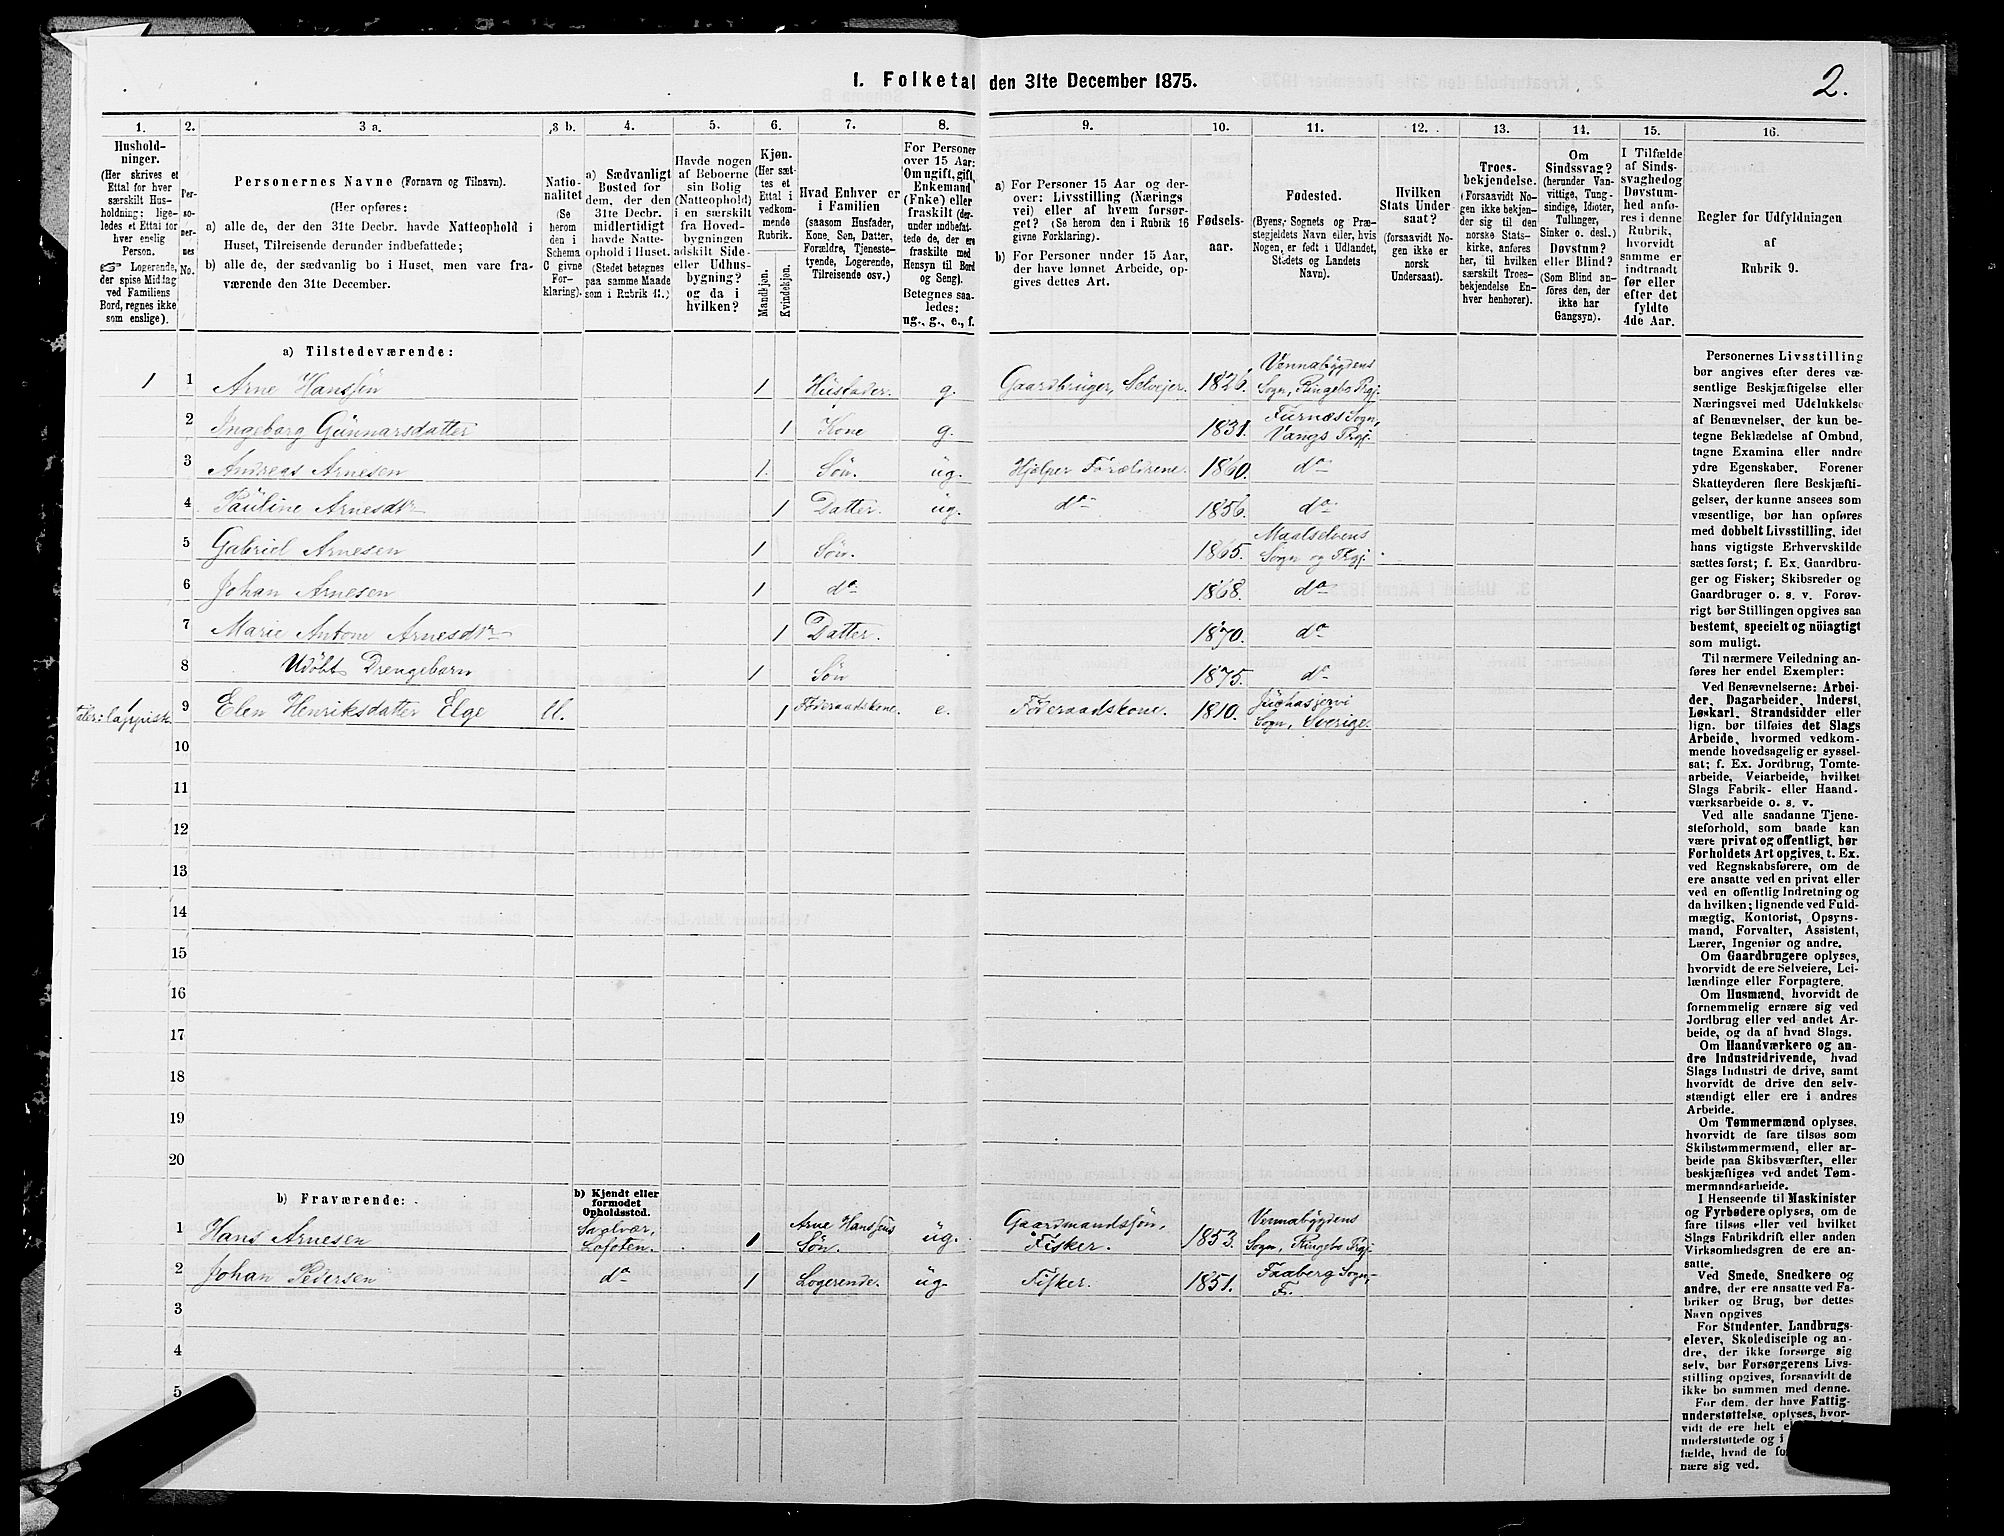 2.
1. Folketal den 31te December 1875.
1. 2. 3 a. 3 b. 4. 5. 6. 7. 8. 9. 10. 11. 12. 13. 14. 15. 16.
Hushold-
ninger.
(Her skrives et
Ettal for hver
særskilt Hus-
holdning; lige-
ledes et Ettal for
hver enslig
Person.
☞ Logerende,
der spise Middag
ved Familiens
Bord, regnes ikke
som enslige).
Per-
so-
ner-
nes
No.
Personernes Navne (Fornavn og Tilnavn).
(Her opføres:
a) alle de, der den 31te Decbr. havde Natteophold i
Huset, Tilreisende derunder indbefattede;
b) alle de, der sædvanlig bo i Huset, men vare fra-
værende den 31te December.
Natio-
nalitet
(Se
herom
den i
Schema
C givne
For-
klaring).
a) Sædvanligt
Bosted for
dem, der den
31te Decbr.
midlertidigt
havde Natte-
ophold i Huset.
(Stedet betegnes
paa samme Maade
som i Rubrik 11.)
Havde nogen
af Beboerne
sin Bolig
(Natteophold)
i en særskilt
fra Hoved-
bygningen
adskilt Side-
eller Udhus-
bygning?
og da i
hvilken?
Kjøn.
(Her sæt-
tes et
Ettal i
vedkom-
mende
Rubrik.
Mandkjøn.
Kvindekjøn.
Hvad Enhver er
i Familien
(saasom Husfader,
Kone, Søn, Datter,
Forældre, Tjeneste-
tyende, Logerende,
Tilreisende osv.)
For Personer
over 15 Aar:
Om ugift, gift,
Enkemand
(Enke) eller
fraskilt (der-
under indbefat-
tede de, der ere
fraskilte med
Hensyn til Bord
og Seng).
Betegnes saa-
ledes:
ug., g., e., f.
a) For Personer 15 Aar og der-
over: Livsstilling (Nærings
vei) eller af hvem forsør-
get? (Se herom den i Rubrik 16
givne Forklaring).
b) For Personer under 15 Aar,
der have lønnet Arbeide, op-
gives dettes Art.
Fødsels-
aar.
Fødested.
(Byens, Sognets og Præ-
stegjeldets Navn eller, hvis
Nogen, er født i Udlandet,
Stedets og Landets
Navn).
Hvilken
Stats Under
saat?
(forsaavidt No-
gen ikke er
norsk
Undersaat).
Troes-
bekjendelse.
(Forsaavidt No-
gen ikke bekjen-
der sig til den
norske Stats-
kirke, anføres
her, til hvilken
særskilt Troes-
bekjendelse En-
hver henhorer).
Om
Sindssvag?
(herunder Van-
vittige, Tung-
sindige, Idioter,
Tullinger,
Sinker o. desl.)
Døvstum?
eller Blind?
(Som Blind an-
føres den, der
ikke har
Gangsyn).
I Tilfælde
af Sinds-
svaghed og
Døvstum-
hed anfø-
res i denne
Rubrik,
hvorvidt
samme er
indtraadt
før eller
efter det
fyldte
4de Aar.
Regler for Udfyldningen
af
Rubrik 9.
a) Tilstedeværende:
1 1 Arne Hanssøn 1 Husfader. g. Gaardbruger, Selvejer. 1826. Vennabygdens Sogn, Ringebo Prgj.
2 Ingeborg Gunnarsdatter 1 Kone g. 1831. Furnæs Sogn, Vangs Prgj.
3 Andreas Arnesen 1. Søn. ug. Hjelper Forældrene. 1860. do
4 Pauline Arnesdtr 1 Datter. ug. do 1856. do
5 Gabriel Arnesen 1 Søn. 1865. Maalselvens Sogn og Prgj.
6 Johan Arnesen 1 do 1868. do
7 Marie Antone Arnesdtr 1 Datter. 1870. do
8 Udöbt Drengebarn 1 Søn 1875. do
taler: lappisk. 9 Elen Henriksdatter Elge 1 Føderaadskone. e. Føderaadskone. 1810. Juchasjervi Sogn, Sverige.
10
11
12
13
14
15
16
17
18
19
20
b) Fraværende:
b) Kjendt eller
formodet
Opholdssted.
1 Hans Arnesen Lofoten. 1 Arne Hanssøns Søn. ug. Gaardmandssøn, Fisker. 1853. Vennabygdens Sogn, Ringebo Prgj.
2 Johan Pedersen do 1 Logerende. ug. Fisker. 1851. Faaberg Sogn,
3
4
5
Personernes Livsstilling
bør angives efter deres væ-
sentlige Beskjæftigelse eller
Næringsvei med Udelukkelse
af Benævnelser, der kun be-
tegne Beklædelse af Ombud,
tagne Examina eller andre
ydre Egenskaber. Forener
Skatteyderen flere Beskjæfti-
gelser, der kunne ansees som
væsentlige, bør han opføres
med dobbelt Livsstilling, idet
hans vigtigste Erhvervskilde
sættes først; f. Ex. Gaardbru-
ger og Fisker; Skibsreder og
Gaardbruger o. s. v. Forøv-
rigt bør Stillingen opgives saa
bestemt, specielt og nöiagtigt
som muligt.
Til nærmere Veiledning an-
føres her endel Exempler:
Ved Benævnelserne: Arbei-
der, Dagarbeider, Inderst,
Løskarl, Strandsidder eller
lign. bør tilføies det Slags
Arbeide, hvormed vedkom-
mende hovedsagelig er syssel-
sat; f. Ex. Jordbrug, Tomte-
arbeide, Veiarbeide, hvilket
Slags Fabrik- eller Haand-
værksarbeide o. s. v.
Ved alle saadanne Tjene-
steforhold, som baade kan
være privat og offentligt, bør
Forholdets Art opgives, t. Ex.
ved Regnskabsførere, om de
ere ansatte ved en privat eller
ved en offentlig Indretning og
da hvilken; lignende ved Fuld-
mægtig, Kontorist, Opsyns-
mand, Forvalter, Assistent,
Lærer, Ingeniør og andre.
Om Gaardbrugere oplyses,
hvorvidt de ere Selveiere, Lei-
lændinge eller Forpagtere.
Om Husmænd, hvorvidt de
fornemmelig ernære sig ved
Jordbrug eller ved andet Ar-
beide, og da af hvad Slags.
Om Haandværkere og an-
dre Industridrivende, hvad
Slags Industri de drive, samt
hvorvidt de drive den selv-
stændigt eller ere i andres
Arbeide.
Om Tømmermænd oplyses,
hvorvidt de fare tilsøs som
Skibstømmermænd, eller ar-
beide paa Skibsværfter, eller
beskjæftiges ved andet Tøm-
mermandsarbeide.
I Henseende til Maskinister
og Fyrbødere oplyses, om de
fare tilsøs eller ved hvilket
Slags Fabrikdrift eller anden
Virksomhedsgren de ere an-
satte.
Ved Smede, Snedkere og
andre, der ere ansatte ved Fa-
briker og Brug, bør dettes
Navn opgives
For Studenter, Landbrugs-
elever, Skoledisciple og an-
dre, der ikke forsørge sig
selv, bør Forsørgerens Livs-
stilling opgives, forsaavidt de
ikke bo sammen med denne.
For dem, der have Fattig-
understøttelse, oplyses, hvor-
vidt de ere helt
understøttede og i
fælde, hvad de
nære sig ved.